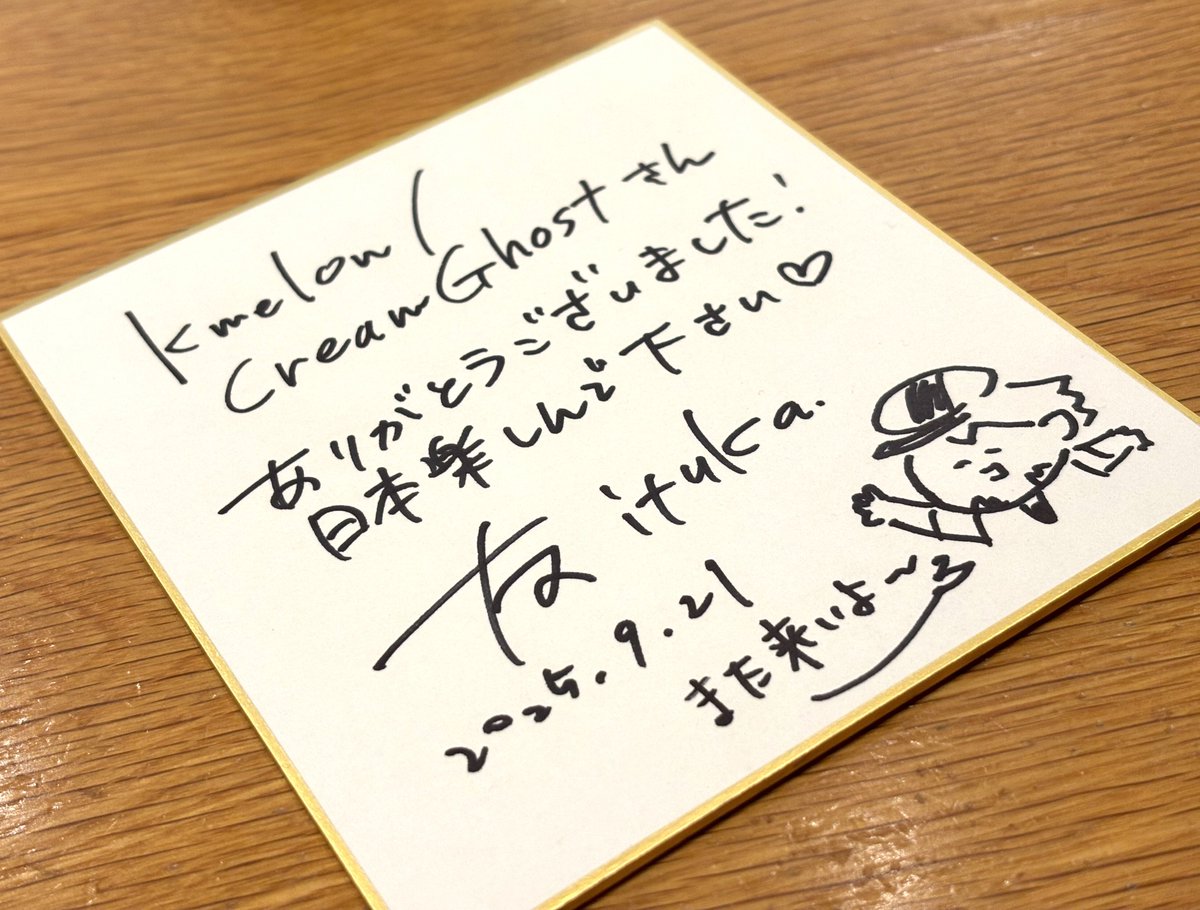 kmelow /
CreamGhost さん
ありがとうございました!
日本楽しんで下さい♡
友 ituka.
2025.9.21
また来いよ〜